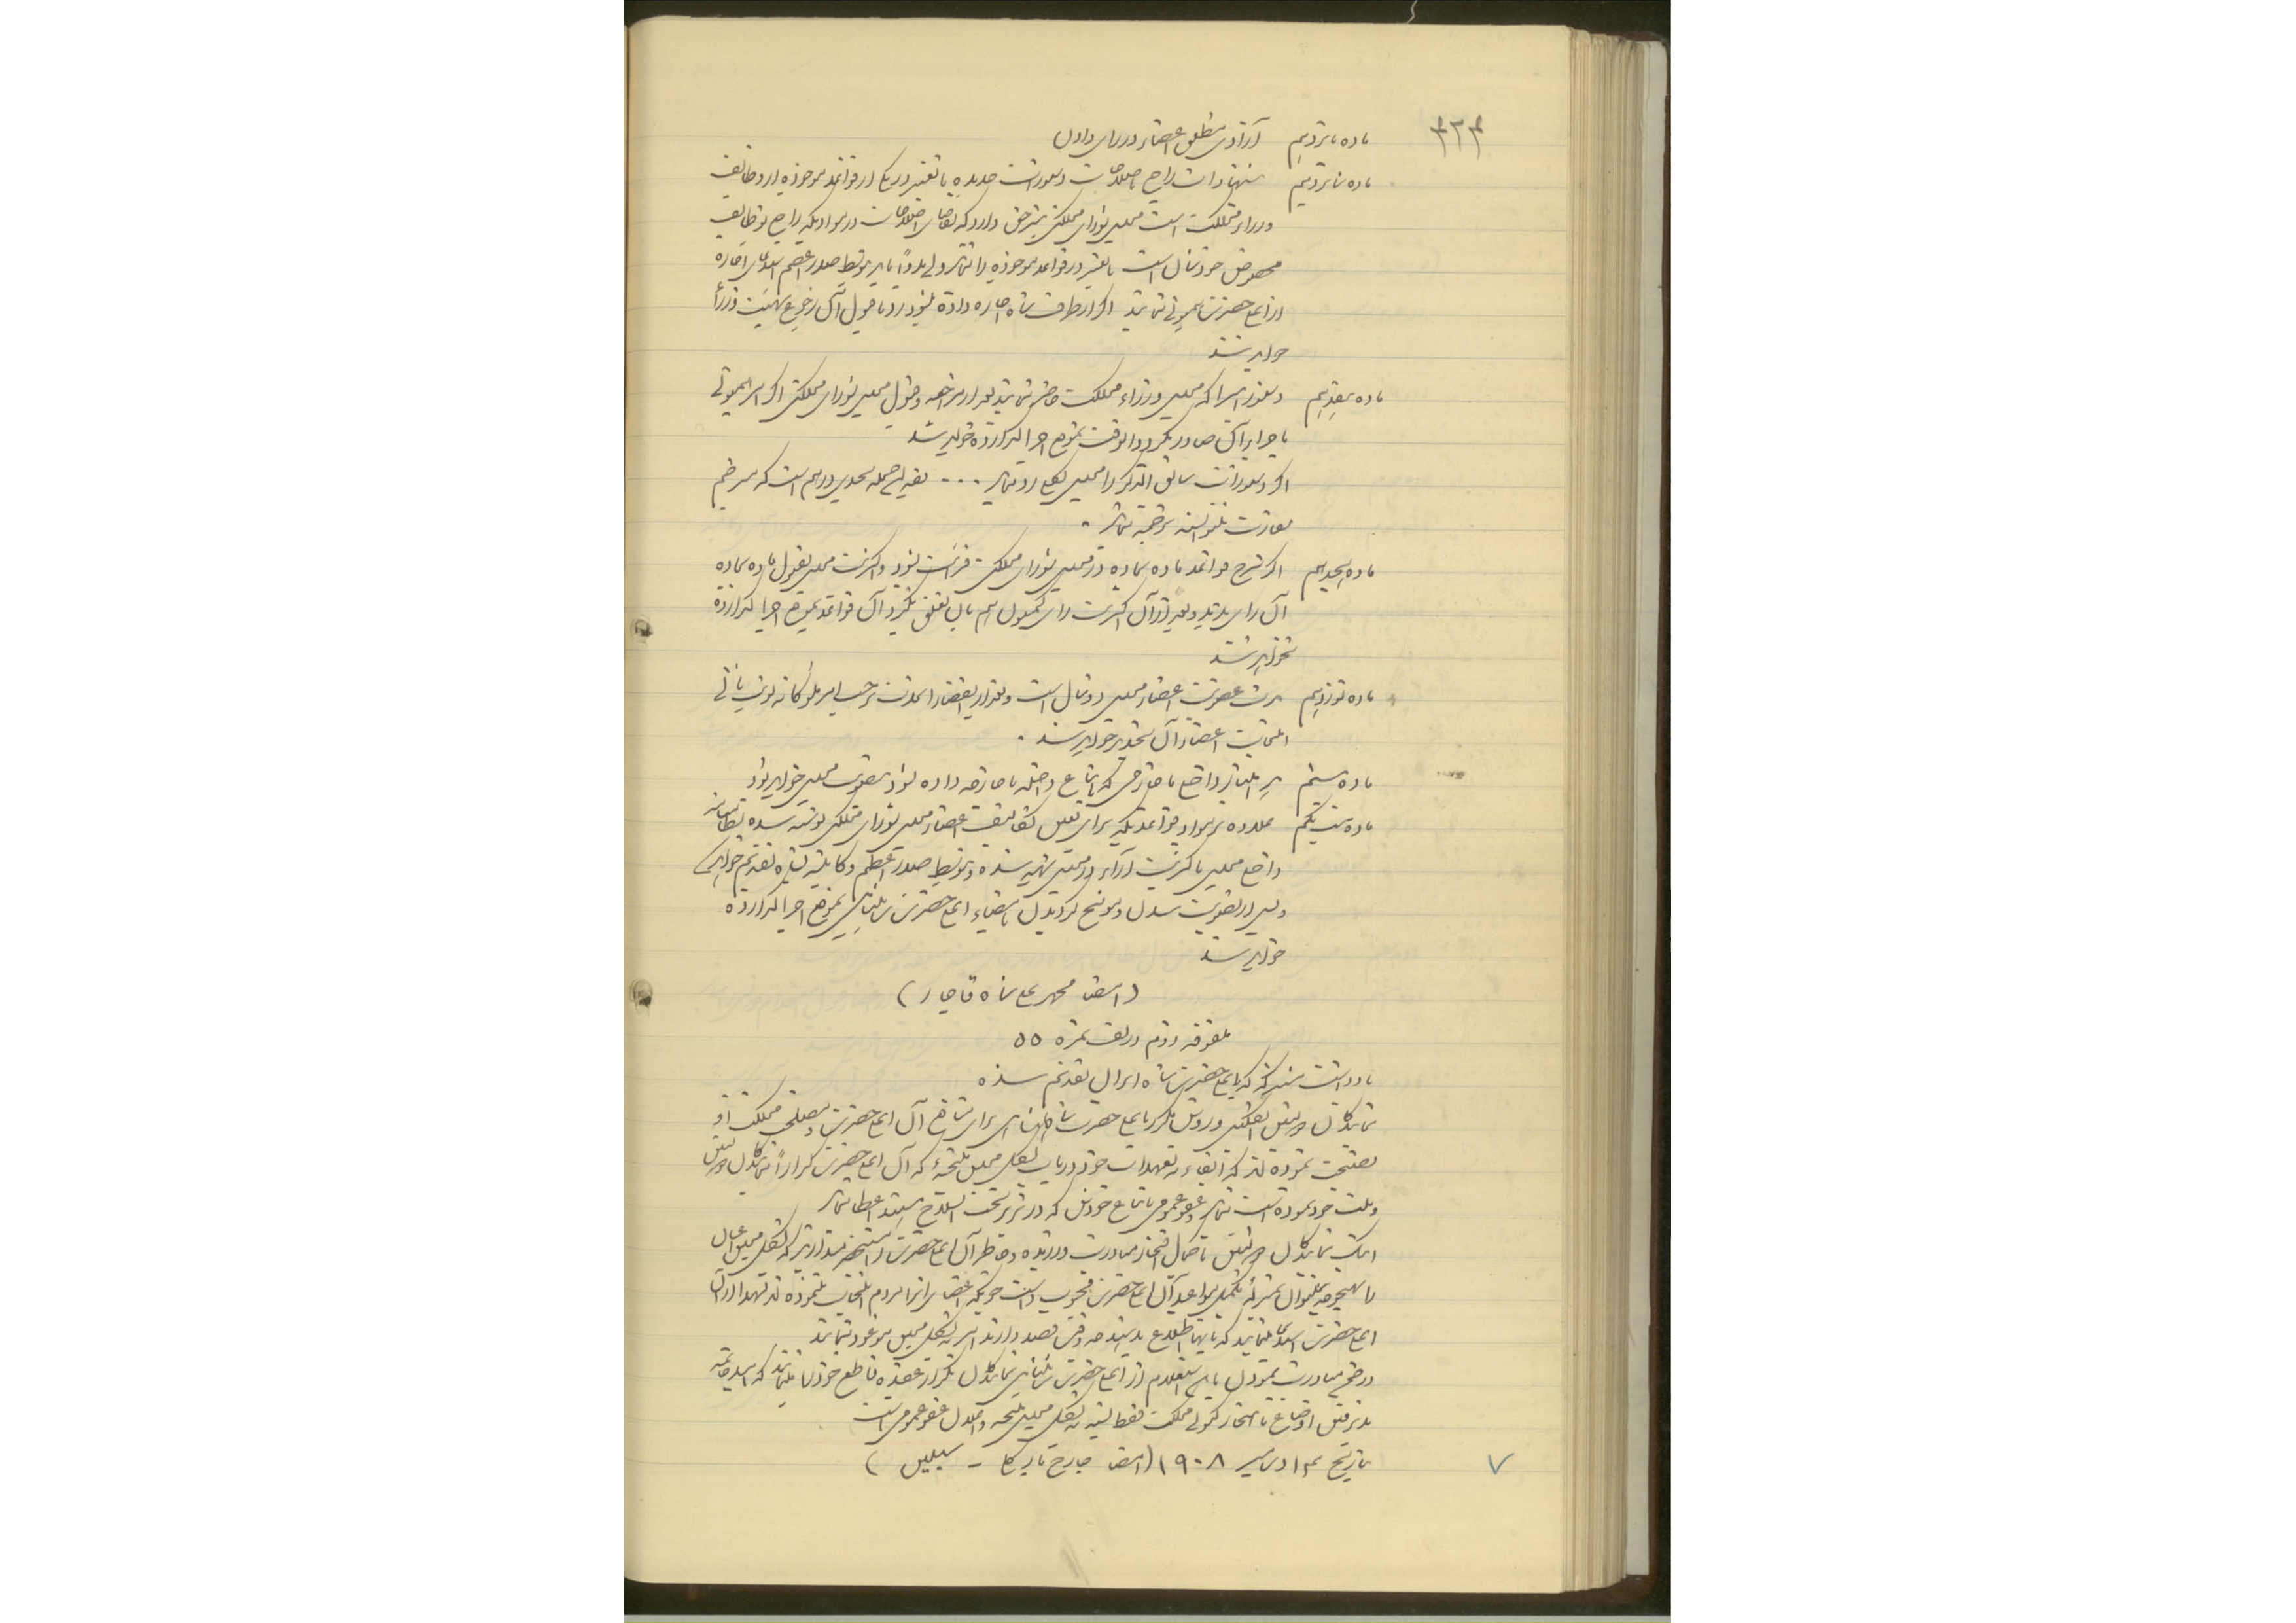 ۳۳۴
ماده پانزدهم آزادی مطلق اعضاء در رأی دادن
ماده شانزدهم پیشنهادات راجع باصلاحات و دستورات جدیده یا تغییر در یکی از قواعد موجوده از وظایف
وزراء مملکت است مجلس شورای مملکتی نیز حق دارد که تقاضای اصلاحات در موادیکه راجع بوظایف
مخصوص خودشان است یا تغییر در قواعد موجوده را نماید ولی بدواً باید بتوسط صدر اعظم استدعای اجازه
از اعلیحضرت همیونی نمایند اگر از طرف شاه اجازه داده شود رد یا قبول آن رجوع بهیئت وزرأ
خواهد شد
ماده هفدهم دستورهائی را که مجلس وزراء مملکت حاضر نمایند بعد از مراجعه و قبول مجلس شورای مملکتی اگر امر همیونی
باجرای آن صادر گردد آنوقت بموقع اجرا گذارده خواهد شد
اگر دستورات سابق الذکر را مجلس رد نماید ... بقیه این جمله بحدی درهم است که مترجم
سفارت نتوانسته ترجمه نماید.
ماده هیجدهم اگر شرح قواعد ماده بماده در مجلس شورای مملکتی قرائت شود و اکثریت مجلس بقبول ماده بماده
آن رأی بدهند و بعد از آن اکثریت رأی کمیون هم بآن تعلق نگیرد آن قواعد بموقع اجرا گذارده
نخواهد شد
ماده نوزدهم مدت عضویت اعضاء مجلس دو سال است و بعد از انقضاء المدت برحسب امر ملوکانه نوبت ثانی
انتخابات اعضاء آن تجدید خواهد شد.
ماده بیستم هر امتیاز داخلی یا خارجی که باتباع داخله یا خارجه داده شود بتصویب مجلس خواهد بود
ماده بیست یکم علاوه بر مواد و قواعدیکه برای تعیین تکالیف اعضاء مجلس شورای مملکتی نوشته شده نظامنامه
داخلی مجلس باکثریت آراء در مجلس تهیه شده و بتوسط صدر اعظم و کابینه بشاه تقدیم خواهد شد
و پس از تصویب شدن و موشح گردیدن بامضاء اعلیحضرت شاهنشاهی بموقع اجرا گذارده
خواهد شد
(امضا محمد علی شاه قاجار)
ملفوفه دوم در لف نمره ۵۵
یادداشت مشترکی که باعلیحضرت شاه ایران تقدیم شده
نمایندگان دولتین انگلیس و روس مکرر باعلیحضرت شاهنشاهی برای منافع آن اعلیحضرت و مصلحت مملکت او
نصیحت نموده اند که ایفاء به تعهدات خود در باب تشکیل مجلس منتخبه که آن اعلیحضرت کراراً بنمایندگان دولتین
و ملت خود نموده است نماید و عفو عمومی باتباع خودش که در زیر تحت السلاح هستند اعطا نماید
اینک نمایندگان دولتین با کمال افتخار مبادرت ورزیده و خاطر آن اعلیحضرت را مستحضر میدارند که تشکیل مجلس اعیان
را بهیچوجه نمیتوان بمنزله تکمیل مواعید آن اعلیحضرت محسوب داشت چونکه اعضای آنرا مردم انتخاب ننموده اند لهذا از آن
اعلیحضرت استدعا مینمایند که بآنها اطلاع بدهند چه وقت قصد دارند امر به تشکیل مجلس موعود نمایند
در ضمن مبادرت نمودن باین استعلام از اعلیحضرت شاهنشاهی نمایندگان تکرار عقیده قاطع خود را مینمایند که امید خاتمه
پذیرفتن اوضاع ناهنجار کنونی مملکت فقط بسته به تشکیل مجلس منتخبه و اعلان عفو عمومی است
بتاریخ ۱۴ دسامبر ۱۹۰۸ (امضا جارج بارکلی - سبلین)